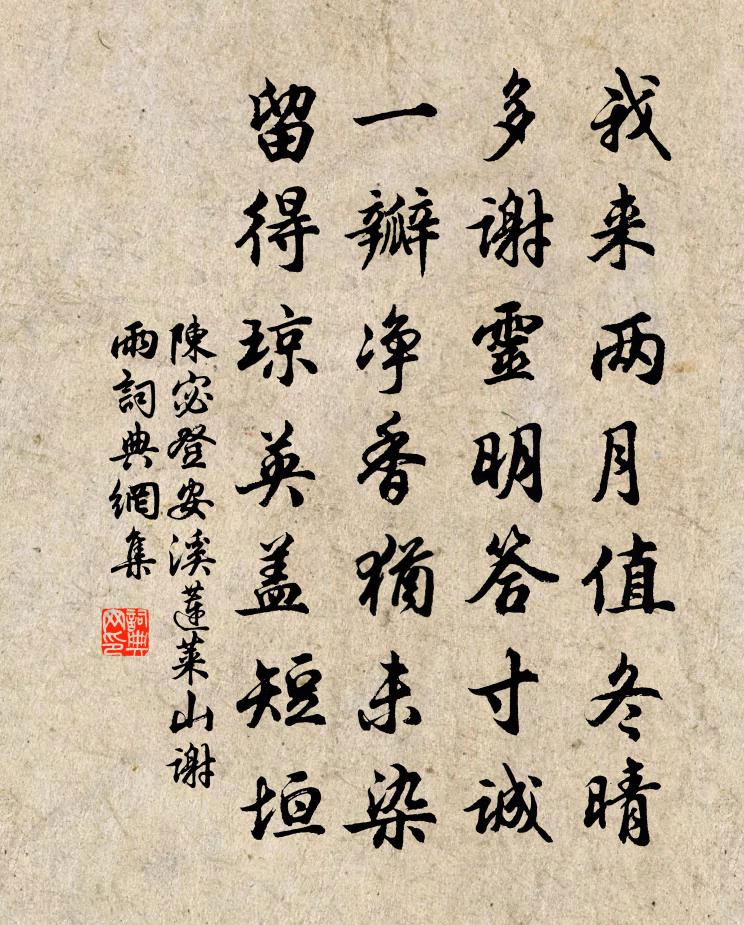 我来两月值冬晴
多谢靈明答寸诚
一瓣净香猶未染
留得琼英盖短垣
陳宓登安溪蓬莱山谢
雨詞典網集
詞典网印